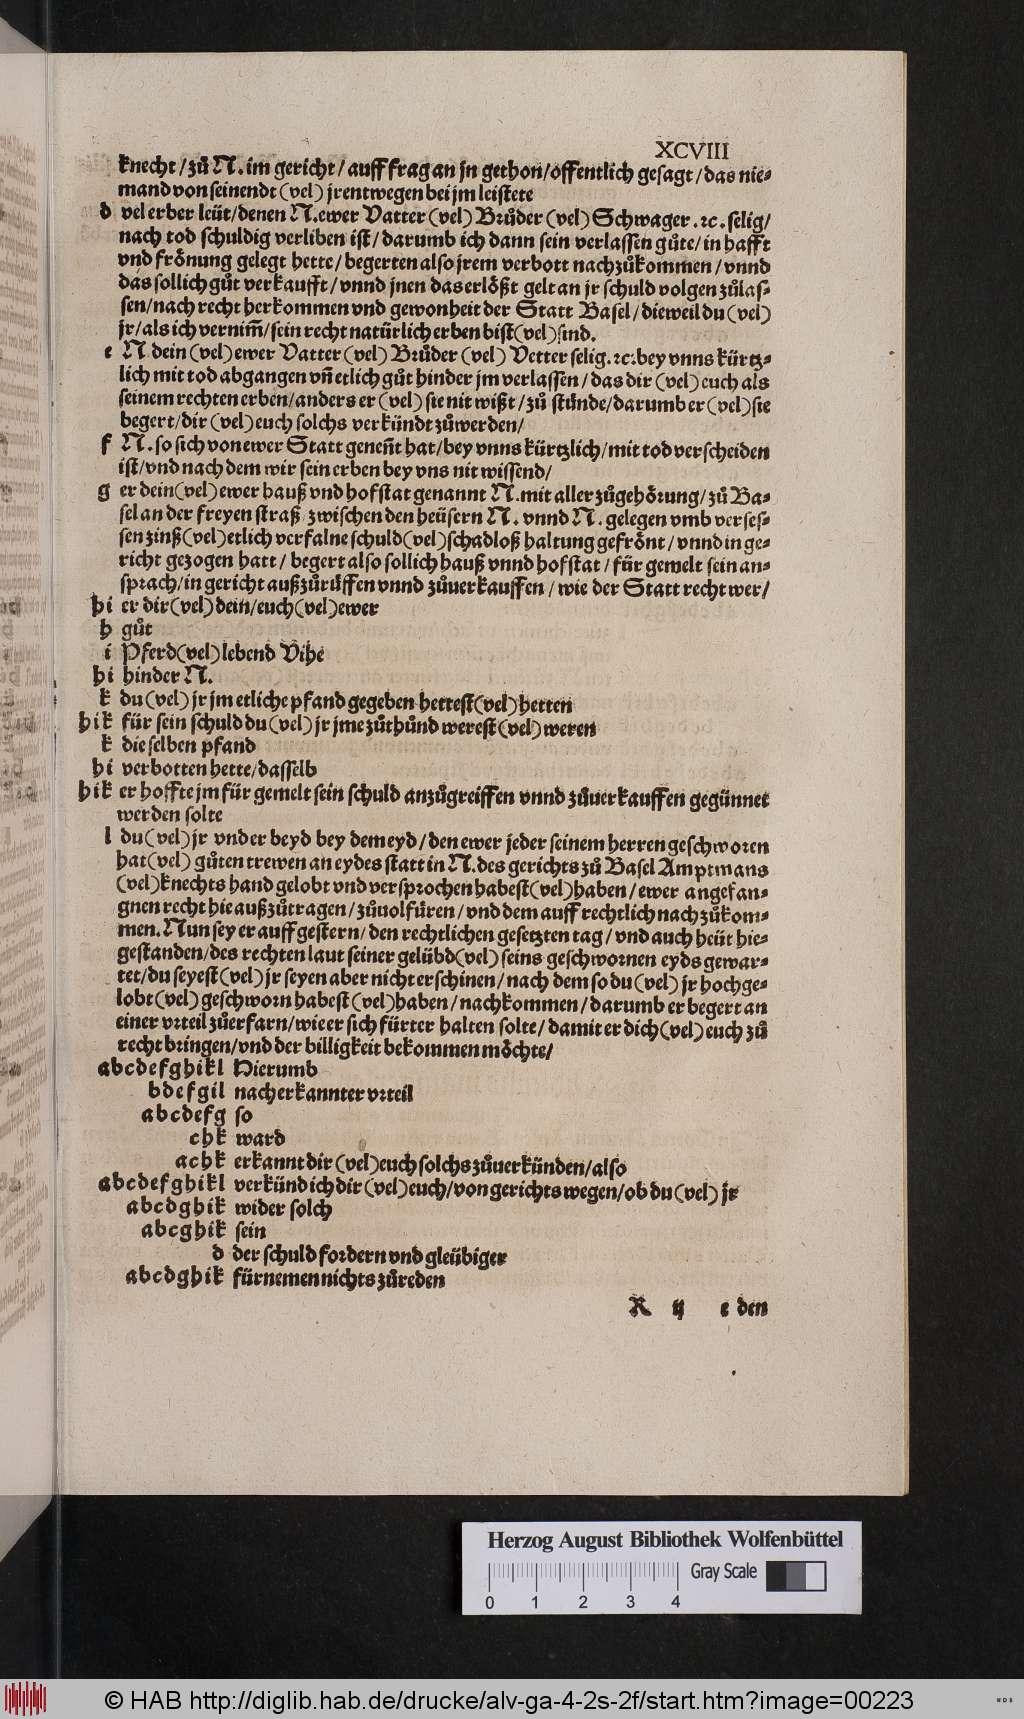 XCVIII
knecht/zuͦ N. im gericht/auff frag an jn gethon/offentlich gesagt/das nie⸗
mand von seinendt (vel) jrentwegen bei jm leistete
d vel erber leüt/denen N. ewer Vatter (vel) Bruͦder (vel) Schwager .ꝛc. selig/
nach tod schuldig verliben ist/darumb ich dann sein verlassen guͦte/in hafft
vnd froͤnung gelegt hette/begerten also jrem verbott nachzuͦkommen/vnnd
das sollich guͦt verkaufft/vnnd jnen das erloͤßt gelt an jr schuld volgen zuͦlas⸗
sen/nach recht herkommen vnd gewonheit der Statt Basel/dieweil du (vel)
jr/als ich vernim̃/sein recht natürlich erben bist (vel) sind.
e N. dein (vel) ewer Vatter (vel) Bruͦder (vel) Vetter selig .ꝛc. bey vnns kürtz⸗
lich mit tod abgangen vñ etlich guͦt hinder jm verlassen/das dir (vel) euch als
seinem rechten erben/anders er (vel) sie nit wißt/zuͦ stünde/darumb er (vel) sie
begert/dir (vel) euch solchs verkündt zuͦwerden/
f N. so sich von ewer Statt geneñt hat/bey vnns kürtzlich/mit tod verscheiden
ist/vnd nach dem wir sein erben bey vns nit wissend/
g er dein (vel) ewer hauß vnd hofstat genannt N. mit aller zuͦgehoͤrung/zuͦ Ba⸗
sel an der freyen straß zwischen den heüsern N. vnnd N. gelegen vmb verses⸗
sen zinß (vel) etlich verfalne schuld (vel) schadloß haltung gefroͤnt/vnnd in ge⸗
richt gezogen hatt/begert also sollich hauß vnnd hofstat/für gemelt sein an⸗
sprach/in gericht außzuͦrüffen vnnd zuͦuerkauffen/wie der Statt recht wer/
hi er dir (vel) dein/euch (vel) ewer
h guͦt
i Pferd (vel) lebend Vihe
hi hinder N.
k du (vel) jr jm etliche pfand gegeben hettest (vel) hetten
hik für sein schuld du (vel) jr jme zuͦthuͦnd werest (vel) weren
k dieselben pfand
hi verbotten hette/dasselb
hik er hoffte jm für gemelt sein schuld anzuͦgreiffen vnnd zuͦuerkauffen gegünnet
werden solte
l du (vel) jr vnd er beyd bey dem eyd/den ewer jeder seinem herren geschworen
hat (vel) guͦten trewen an eydes statt in N. des gerichts zuͦ Basel Amptmans
(vel) knechts hand gelobt vnd versprochen habest (vel) haben/ewer angefan⸗
gnen recht hie außzuͦtragen/zuͦuolfüren/vnd dem auff rechtlich nachzuͦkom⸗
men. Nun sey er auff gestern/den rechtlichen gesetzten tag/vnd auch heüt hie⸗
gestanden/des rechten laut seiner gelübd (vel) seins geschwornen eyds gewar⸗
tet/du seyest (vel) jr seyen aber nicht erschinen/nach dem so du (vel) jr hochge⸗
lobt (vel) geschworn habest (vel) haben/nachkommen/darumb er begert an
einer vrteil zuͦerfarn/wie er sich fürter halten solte/damit er dich (vel) euch zuͦ
recht bringen/vnd der billigkeit bekommen moͤchte/
abcdefghikl Hierumb
bdefgil nach erkannter vrteil
abcdefg so
chk ward
achk erkannt dir (vel) euch solchs zuͦuerkünden/also
abcdefghikl verkünd ich dir (vel) euch/von gerichts wegen/ob du (vel) jr
abcdghik wider solch
abcghik sein
d der schuld fordern vnd gleübiger
abcdghik fürnemen nichts zuͦreden
R ij e den
Herzog August Bibliothek Wolfenbüttel
Gray Scale
0 1 2 3 4
© HAB http://diglib.hab.de/drucke/alv-ga-4-2s-2f/start.htm?image=00223